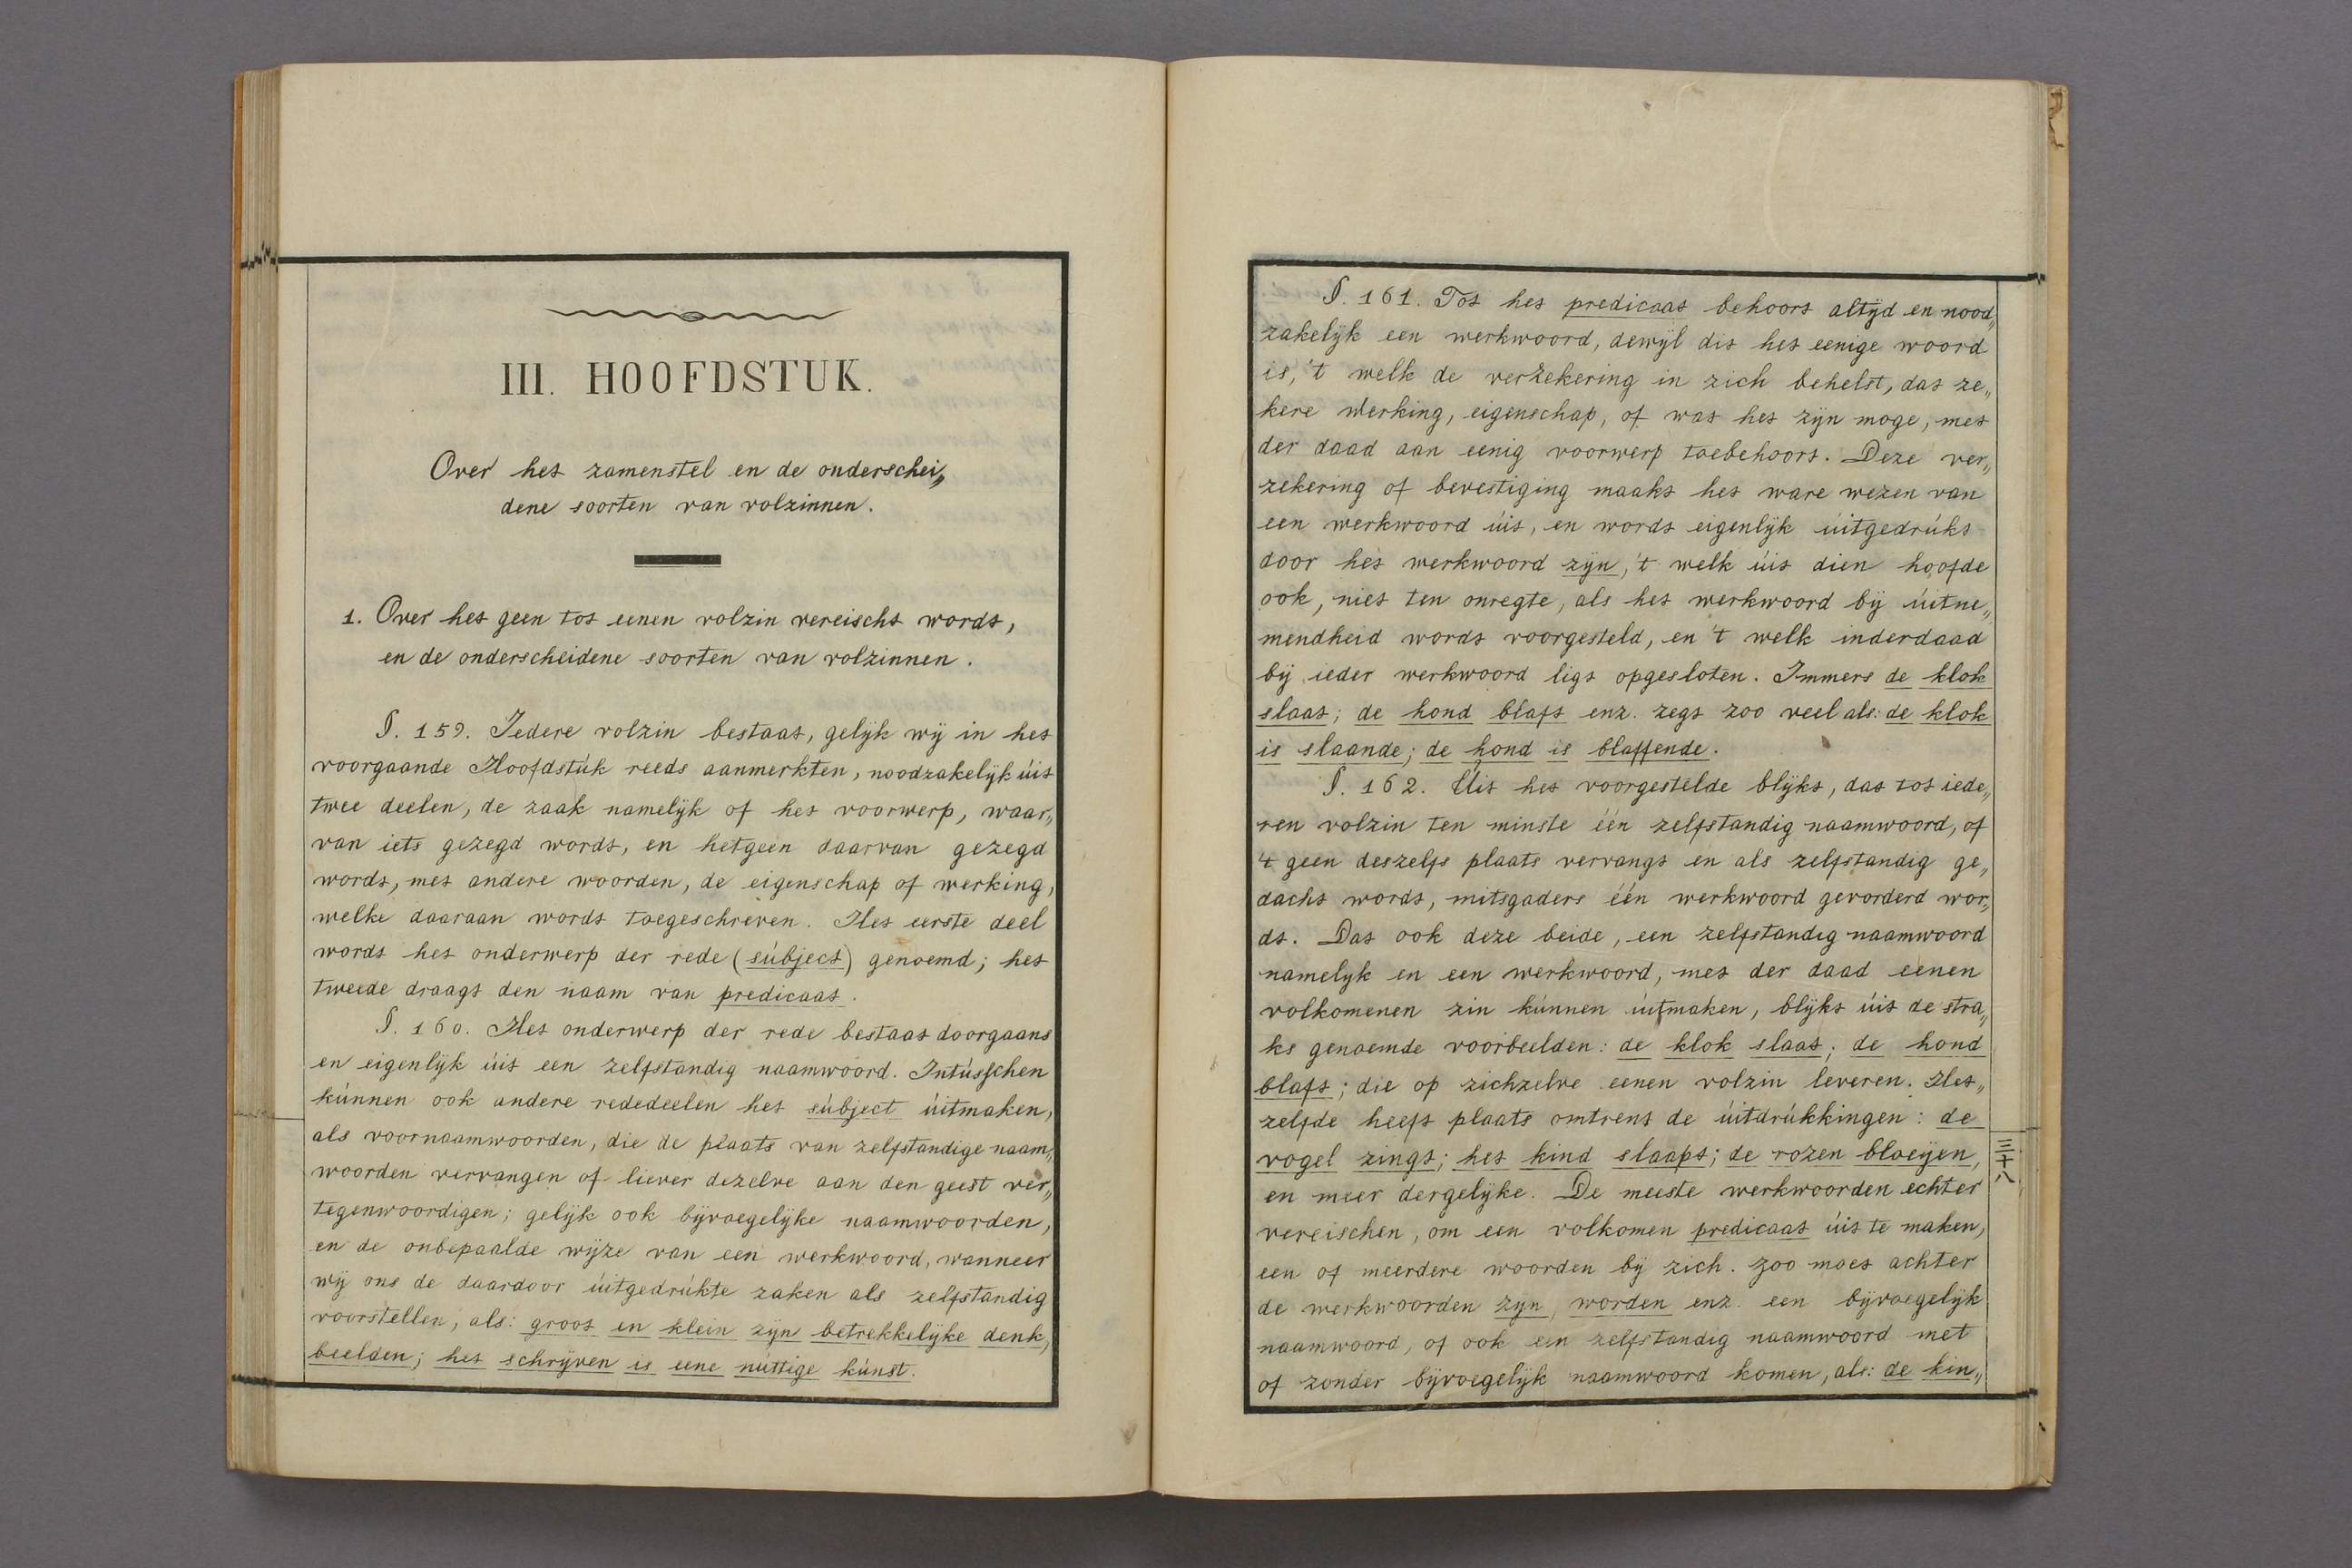 III. HOOFDSTUK.
Over het zamenstel en de onderschei„
dene soorten van volzinnen.
1. Over het geen tot eenen volzin vereischt wordt,
en de onderscheidene soorten van volzinnen.
§. 159. Iedere volzin bestaat, gelijk wij in het
voorgaande Hoofdstúk reeds aanmerkten, noodzakelijk úit
twee deelen, de zaak namelijk of het voorwerp, waar„
van iets gezegd wordt, en hetgeen daarvan gezegd
wordt, met andere woorden, de eigenschap of werking,
welke daaraan wordt toegeschreven. Het eerste deel
wordt het onderwerp der rede (súbject) genoemd; het
tweede draagt den naam van predicaat.
§. 160. Het onderwerp der rede bestaat doorgaans
en eigenlijk úit een zelfstandig naamwoord. Intússchen
kúnnen ook andere rededeelen het súbject úitmaken,
als voornaamwoorden, die de plaats van zelfstandige naam„
woorden vervangen of liever dezelve aan den geest ver„
tegenwoordigen; gelijk ook bijvoegelijke naamwoorden,
en de onbepaalde wijze van een werkwoord, wanneer
wij ons de daardoor úitgedrúkte zaken als zelfstandig
voorstellen, als: groot en klein zijn betrekkelijke denk„
beelden; het schrijven is eene núttige kúnst.
§. 161. Tot het predicaat behoort altijd en nood„
zakelijk een werkwoord, dewijl dit het eenige woord
is, 't welk de verzekering in zich behelst, dat ze„
kere werking, eigenschap, of wat het zijn moge, met
der daad aan eenig voorwerp toebehoort. Deze ver„
zekering of bevestiging maakt het ware wezen van
een werkwoord úit, en wordt eigenlijk úitgedrúkt
door het werkwoord zijn, 't welk úit dien hoofde
ook, niet ten onregte, als het werkwoord bij úitne„
mendheid wordt voorgesteld, en 't welk inderdaad
bij ieder werkwoord ligt opgesloten. Immers de klok
slaat; de hond blaft enz. zegt zoo veel als: de klok
is slaande; de hond is blaffende.
§. 162. Úit het voorgestelde blijkt, dat tot iede„
ren volzin ten minste één zelfstandig naamwoord, of
't geen deszelfs plaats vervangt en als zelfstandig ge„
dacht wordt, mitsgaders één werkwoord gevorderd wor„
dt. Dat ook deze beide, een zelfstandig naamwoord
namelijk en een werkwoord, met der daad eenen
volkomenen zin kúnnen úitmaken, blijkt úit de stra„
ks genoemde voorbeelden: de klok slaat; de hond
blaft; die op zichzelve eenen volzin leveren. Het„
zelfde heeft plaats omtrent de úitdrúkkingen: de
vogel zingt; het kind slaapt; de rozen bloeijen,
en meer dergelijke. De meeste werkwoorden echter
vereischen, om een volkomen predicaat úit te maken,
een of meerdere woorden bij zich. Zoo moet achter
de werkwoorden zijn, worden enz. een bijvoegelijk
naamwoord, of ook een zelfstandig naamwoord met
of zonder bijvoegelijk naamwoord komen, als: de kin„
三十八